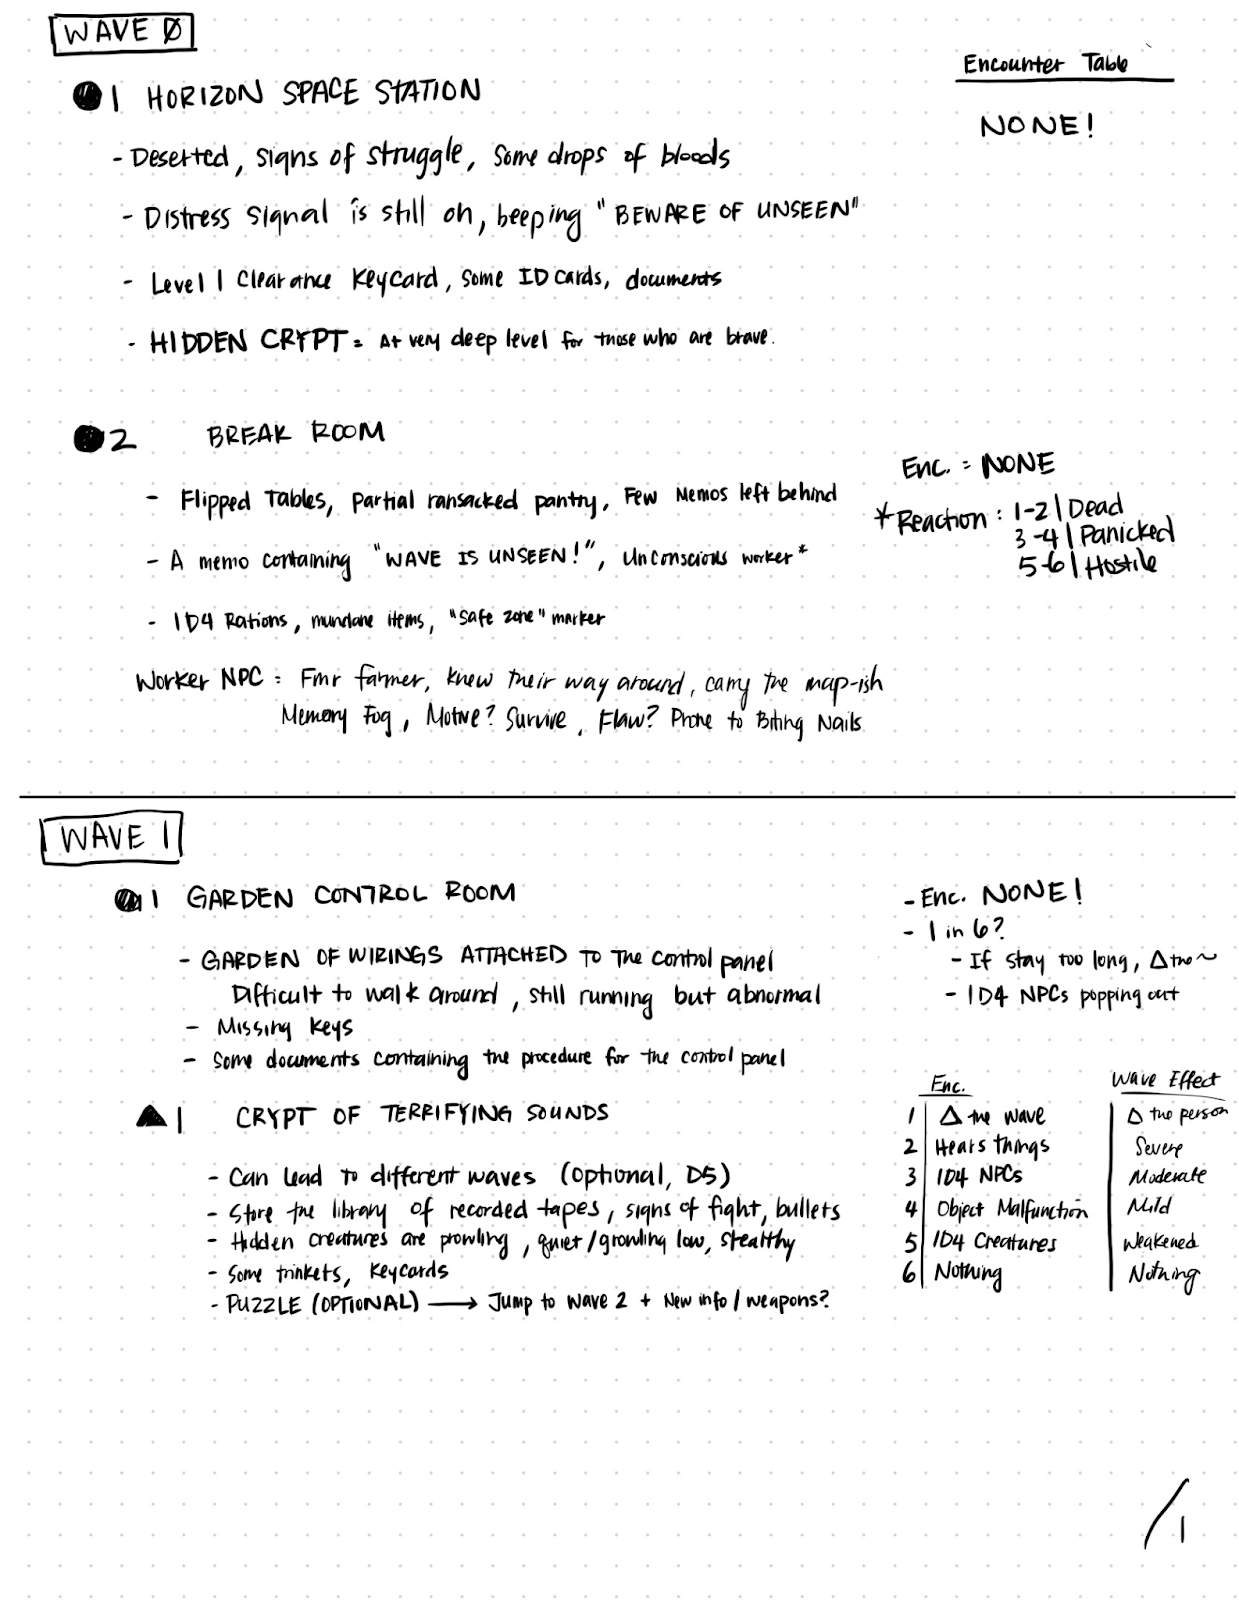 WAVE 0
Encounter Table
1 HORIZON SPACE STATION
NONE!
- Deserted, signs of struggle, some drops of bloods
- Distress signal is still on, beeping "BEWARE OF UNSEEN"
- Level 1 Clearance Keycard, some ID cards, documents
- HIDDEN CRYPT = At very deep level for those who are brave.
2 BREAK ROOM
Enc. = NONE
- Flipped Tables, partial ransacked pantry, Few Memos left behind
*Reaction : 1-2 | Dead
3-4 | Panicked
5-6 | Hostile
- A memo containing "WAVE IS UNSEEN!", Unconscious worker*
- 1D4 Rations, mundane items, "safe zone" marker
Worker NPC = Fmr farmer, knew their way around, carry the map-ish
Memory Fog, Motive? Survive, Flaw? Prone to Biting Nails
WAVE 1
1 GARDEN CONTROL ROOM
- GARDEN OF WIRINGS ATTACHED TO The control panel
Difficult to walk around, still running but abnormal
- Missing keys
- Some documents containing the procedure for the control panel
- Enc. NONE!
- 1 in 6?
- If stay too long, Δ the ~
- 1D4 NPCs popping out
1 CRYPT OF TERRIFYING SOUNDS
- Can lead to different waves (optional, D5)
- Store the library of recorded tapes, signs of fight, bullets
- Hidden creatures are prowling, quiet/growling low, stealthy
- Some trinkets, keycards
- PUZZLE (OPTIONAL) → Jump to wave 2 + New info / weapons?
Enc. Wave Effect
1 Δ the wave Δ the person
2 Hears things Severe
3 1D4 NPCs Moderate
4 Object Malfunction Mild
5 1D4 Creatures Weakened
6 Nothing Nothing
/1